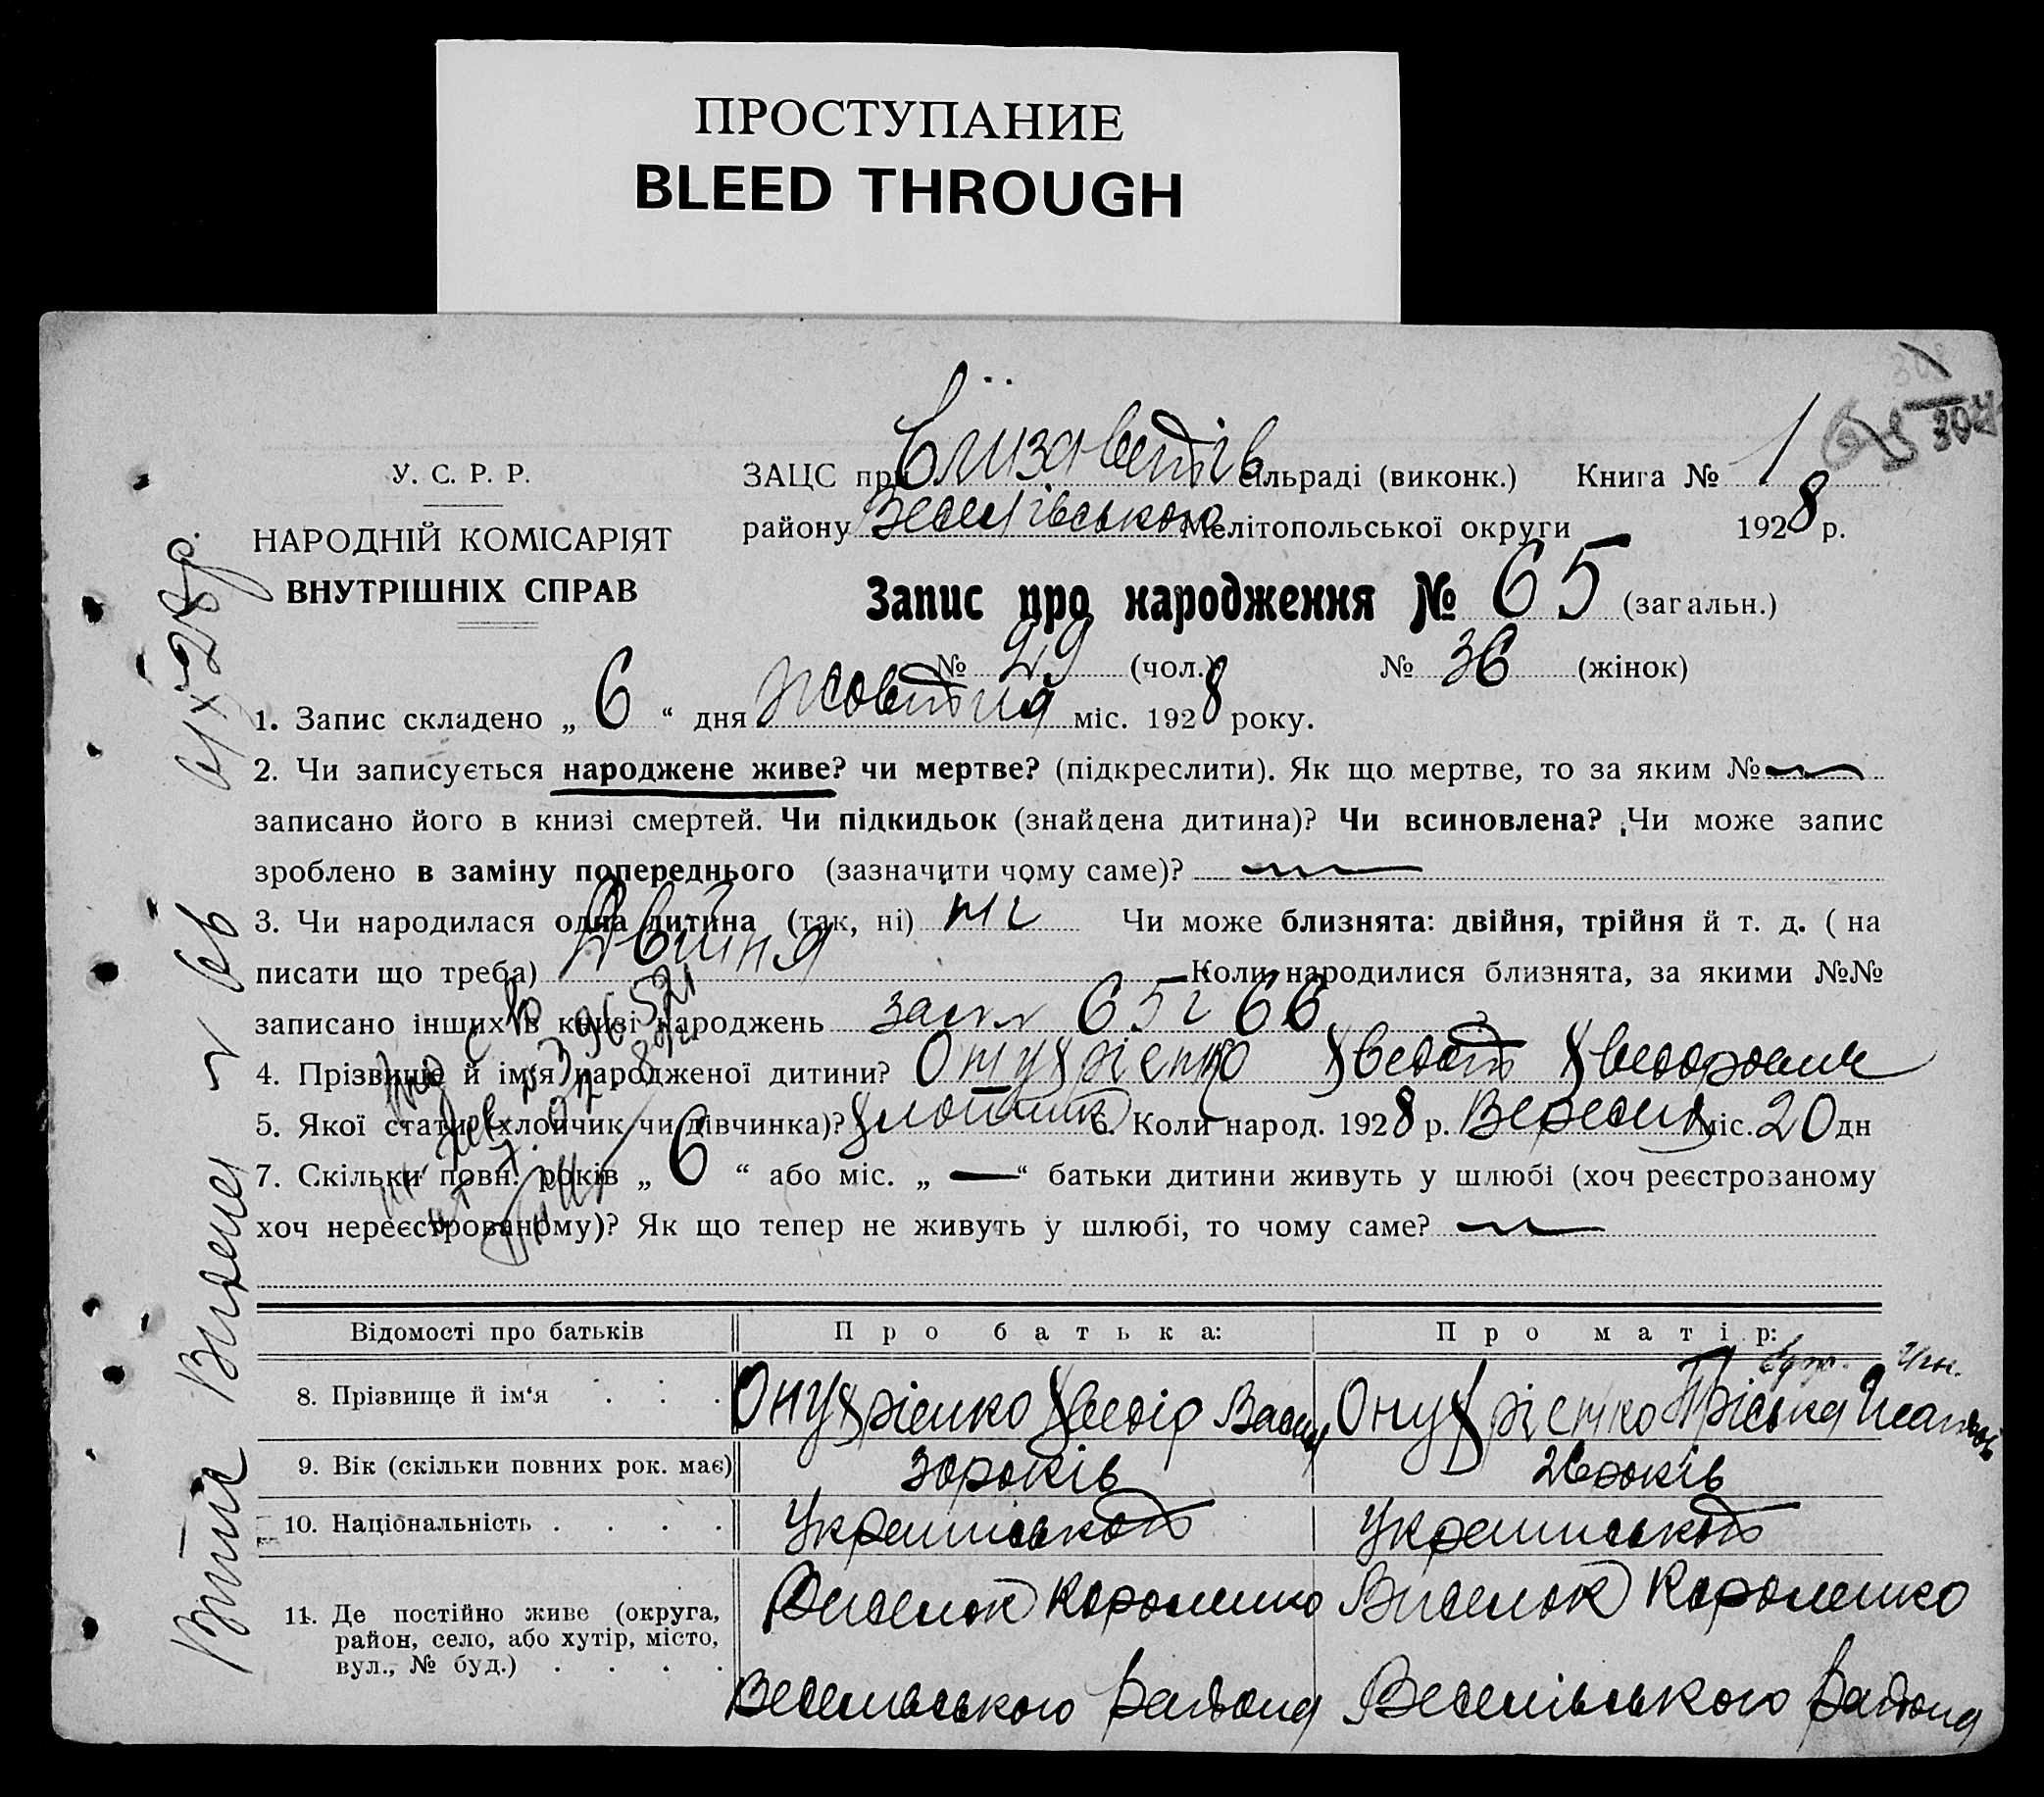 ПРОСТУПАНИЕ
BLEED THROUGH
У. С. Р. Р.
НАРОДНІЙ КОМІСАРІЯТ
ВНУТРІШНІХ СПРАВ
ЗАЦС при Єлизаветів сільраді (виконк.) Книга № 1
району Веселівського Мелітопольської округи 1928 р.
Запис про народження № 65 (загальн.)
№ 29 (чол.) № 36 (жінок)
1. Запис складено „ 6 “ дня жовтня міс. 1928 року.
2. Чи записується народжене живе? чи мертве? (підкреслити). Як що мертве, то за яким №
записано його в книзі смертей. Чи підкидьок (знайдена дитина)? Чи всиновлена? Чи може запис
зроблено в заміну попереднього (зазначити чому саме)?
3. Чи народилася одна дитина (так, ні) ні Чи може близнята: двійня, трійня й т. д. ( на
писати що треба) Двійня Коли народилися близнята, за якими №№
записано інших в книзі народжень 65 і 66
4. Прізвище й ім'я народженої дитини? Онуфрієнко Федот Федорович
5. Якої стати (хлопчик чи дівчинка)? хлопчик 6. Коли народ. 1928 р. Вересня міс. 20 дн
7. Скільки повн. років „ 6 “ або міс. „ — “ батьки дитини живуть у шлюбі (хоч реєстрозаному
хоч нереєстрованому)? Як що тепер не живуть у шлюбі, то чому саме?
Відомості про батьків Про батька: Про матір:
8. Прізвище й ім‘я . . . Онуфрієнко Федір Васил Онуфрієнко Пріська
9. Вік (скільки повних рок. має) 30 років 26 років
10. Національність . . . . Українська Українська
11. Де постійно живе (округа,
район, село, або хутір, місто,
вул., № буд.) . . . .
Виселок Короленко Виселок Короленко
Веселівського району Веселівського району